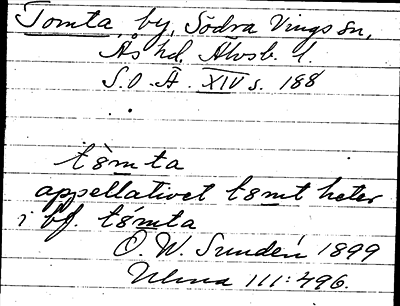 Tomta, by, Södra Vings sn,
Ås hd, Älvsb. l.
S.O.Ä. XIV s. 188
t8̀mta
appellativet t8mt heter
i bf. t8mta
O. W. Sundén 1899
Ulma 111:496.